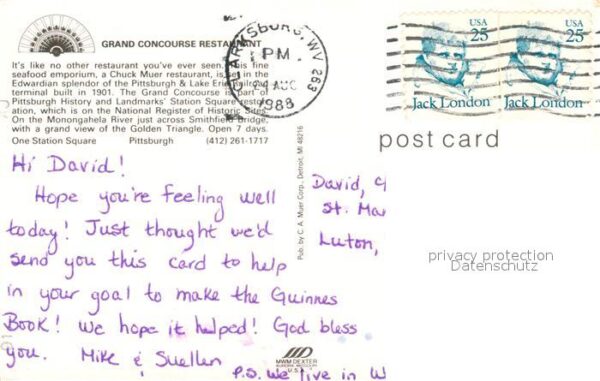 GRAND CONCOURSE RESTAURANT
It's like no other restaurant you've ever seen. This fine
seafood emporium, a Chuck Muer restaurant, is in the
Edwardian splendor of the Pittsburgh & Lake Erie Railroad
terminal built in 1901. The Grand Concourse is part of
Pittsburgh History and Landmarks' Station Square restor-
ation, which is on the National Register of Historic Sites.
On the Monongahela River just across Smithfield Bridge,
with a grand view of the Golden Triangle. Open 7 days.
One Station Square Pittsburgh (412) 261-1717
CLARKSBURG, WV 263
PM
AUG
1988
USA
25
Jack London
USA
25
Jack London
post card
Hi David!
Hope you're feeling well
today! Just thought we'd
send you this card to help
in your goal to make the Guinnes
Book! We hope it helped! God bless
you. Mike & Suellen
P.S. We live in W
Pub. by C. A. Muer Corp., Detroit, MI 48216
David,
St. Mar
Luton,
privacy protection
Datenschutz
MWM DEXTER
AURORA, MISSOURI
U.S.A.